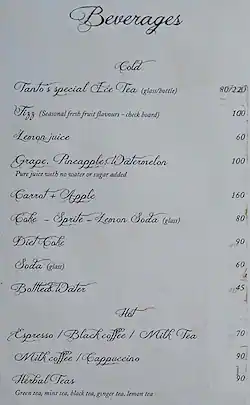 Beverages
Cold
Tanto's special Ice Tea (glass/bottle) 80/220
Fizz (Seasonal fresh fruit flavours - check board) 100
Lemon juice 60
Grape, Pineapple, Watermelon 100
Pure juice with no water or sugar added
Carrot + Apple 160
Coke - Sprite - Lemon Soda (glass) 80
Diet Coke 90
Soda (glass) 60
Bottled Water 45
Hot
Espresso / Black coffee / Milk Tea 70
Milk coffee / Cappuccino 90
Herbal Teas 90
Green tea, mint tea, black tea, ginger tea, lemon tea